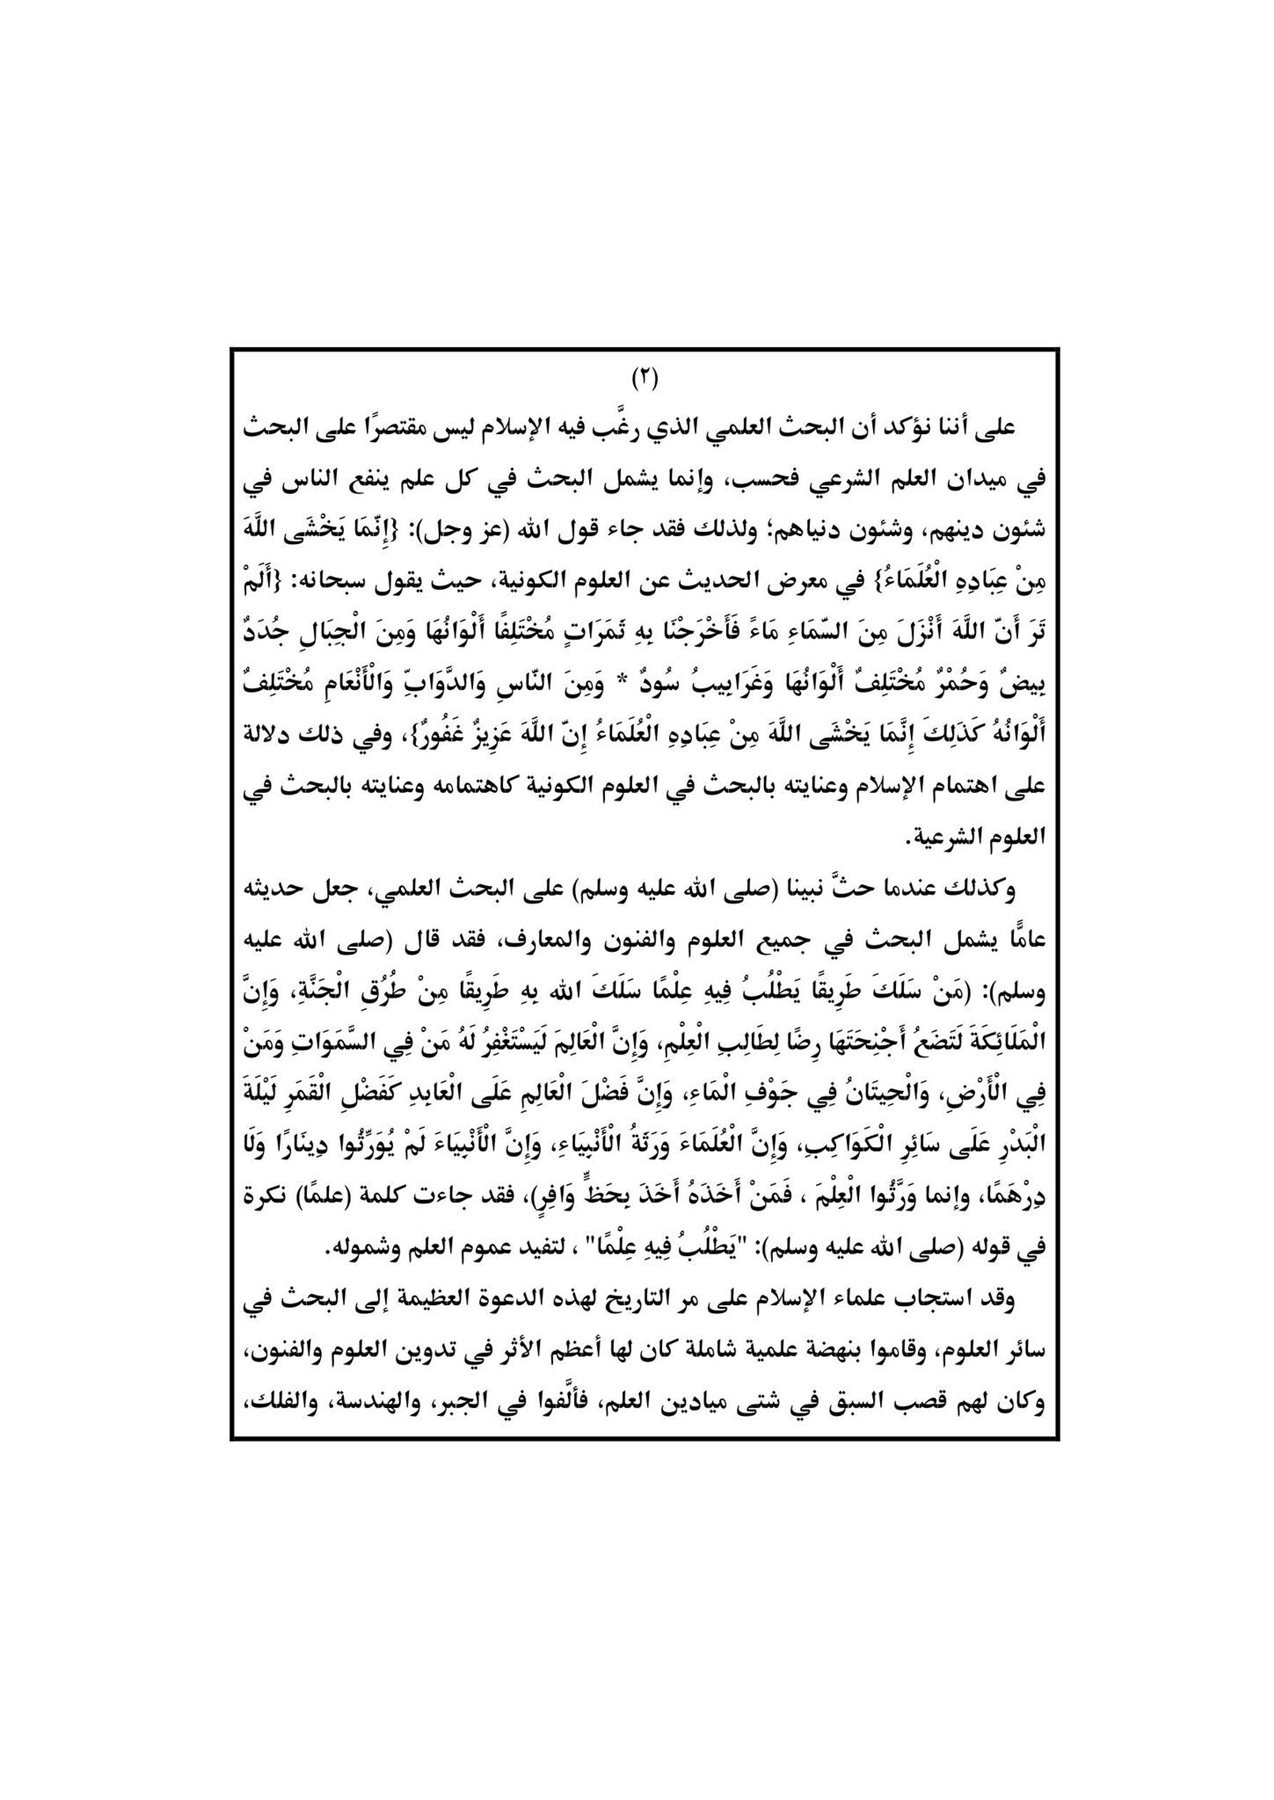 (٢)
على أننا نؤكد أن البحث العلمي الذي رغَّب فيه الإسلام ليس مقتصرًا على البحث
في ميدان العلم الشرعي فحسب، وإنما يشمل البحث في كل علم ينفع الناس في
شئون دينهم، وشئون دنياهم؛ ولذلك فقد جاء قول الله (عز وجل): {إِنّمَا يَخْشَى اللَّهَ
مِنْ عِبَادِهِ الْعُلَمَاءُ} في معرض الحديث عن العلوم الكونية، حيث يقول سبحانه: {أَلَمْ
تَرَ أَنّ اللَّهَ أَنْزَلَ مِنَ السّمَاءِ مَاءً فَأَخْرَجْنَا بِهِ ثَمَرَاتٍ مُخْتَلِفًا أَلْوَانُهَا وَمِنَ الْجِبَالِ جُدَدٌ
بِيضٌ وَحُمْرٌ مُخْتَلِفٌ أَلْوَانُهَا وَغَرَابِيبُ سُودٌ * وَمِنَ النّاسِ وَالدَّوَابِّ وَالْأَنْعَامِ مُخْتَلِفٌ
أَلْوَانُهُ كَذَلِكَ إِنَّمَا يَخْشَى اللَّهَ مِنْ عِبَادِهِ الْعُلَمَاءُ إِنّ اللَّهَ عَزِيزٌ غَفُورٌ}، وفي ذلك دلالة
على اهتمام الإسلام وعنايته بالبحث في العلوم الكونية كاهتمامه وعنايته بالبحث في
العلوم الشرعية.
وكذلك عندما حثَّ نبينا (صلى الله عليه وسلم) على البحث العلمي، جعل حديثه
عامًّا يشمل البحث في جميع العلوم والفنون والمعارف، فقد قال (صلى الله عليه
وسلم): (مَنْ سَلَكَ طَرِيقًا يَطْلُبُ فِيهِ عِلْمًا سَلَكَ الله بِهِ طَرِيقًا مِنْ طُرُقِ الْجَنَّةِ، وَإِنَّ
الْمَلَائِكَةَ لَتَضَعُ أَجْنِحَتَهَا رِضًا لِطَالِبِ الْعِلْمِ، وَإِنَّ الْعَالِمَ لَيَسْتَغْفِرُ لَهُ مَنْ فِي السَّمَوَاتِ وَمَنْ
فِي الْأَرْضِ، وَالْحِيتَانُ فِي جَوْفِ الْمَاءِ، وَإِنَّ فَضْلَ الْعَالِمِ عَلَى الْعَابِدِ كَفَضْلِ الْقَمَرِ لَيْلَةَ
الْبَدْرِ عَلَى سَائِرِ الْكَوَاكِبِ، وَإِنَّ الْعُلَمَاءَ وَرَثَةُ الْأَنْبِيَاءِ، وَإِنَّ الْأَنْبِيَاءَ لَمْ يُوَرِّثُوا دِينَارًا وَلَا
دِرْهَمًا، وإنما وَرَّثُوا الْعِلْمَ ، فَمَنْ أَخَذَهُ أَخَذَ بِحَظٍّ وَافِرٍ)، فقد جاءت كلمة (علمًا) نكرة
في قوله (صلى الله عليه وسلم): "يَطْلُبُ فِيهِ عِلْمًا" ، لتفيد عموم العلم وشموله.
وقد استجاب علماء الإسلام على مر التاريخ لهذه الدعوة العظيمة إلى البحث في
سائر العلوم، وقاموا بنهضة علمية شاملة كان لها أعظم الأثر في تدوين العلوم والفنون،
وكان لهم قصب السبق في شتى ميادين العلم، فألَّفوا في الجبر، والهندسة، والفلك،